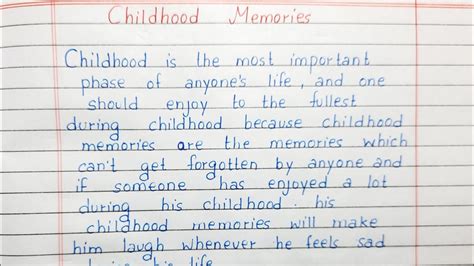 Childhood Memories
Childhood is the most important
phase of anyone's life, and one
should enjoy to the fullest
during childhood because childhood
memories are the memories which
can't get forgotten by anyone and
if someone has enjoyed a lot
during his childhood. his
childhood memories will make
him laugh whenever he feels sad
his life